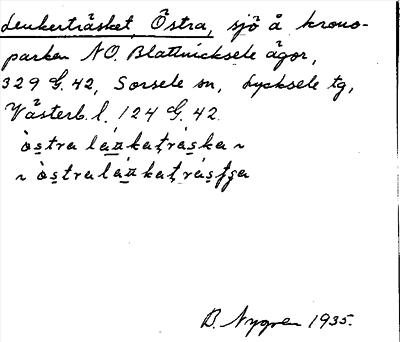 Lenkerträsket, Östra, sjö å krono-
parken NO. Blattnicksele ägor,
329 G. 42, Sorsele sn, Lycksele tg,
Västerb. l. 124 G. 42.
òs̱tra lá̱ṉkaṭrá̱s̱ka ~
~ òs̱tra lá̱ṉkaṭrá̱s̱ʄs̱a
B. Nygren 1935.